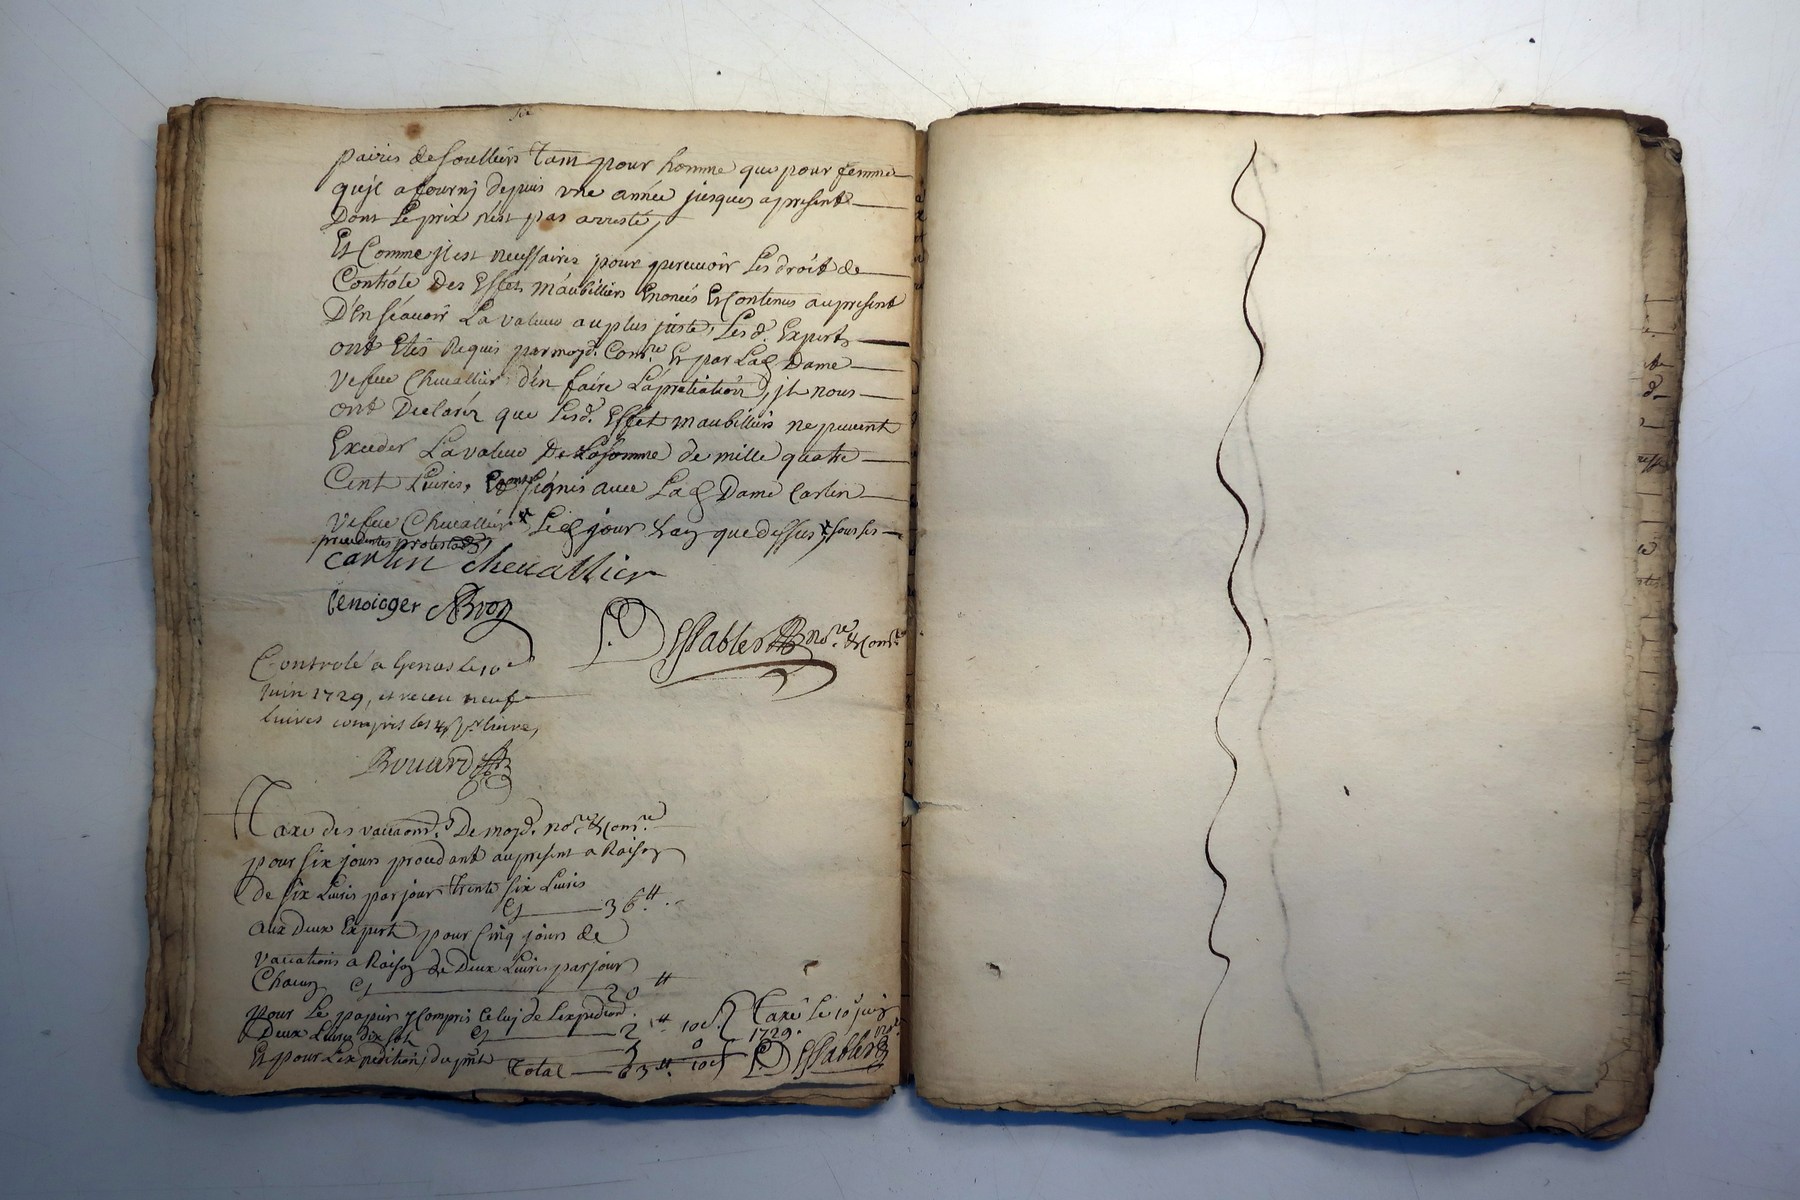 paires de soulliers tant pour homme que pour femme
qu'jl a fournj depuis vne année jusques apresent
Dont Le prix n'est pas arresté,
Et Comme jl est nessaires pour perceuoir Les droit de
Contrôle Des Effets maubilliers Enoncés Et Contenus au present
D'en scauoir La valeur au plus juste, Lesd. Experts
ont Etés Requis par moyd. Com.re Et par Lad Dame
vefue Cheuallier d'en faire L'apretiation, jls nous
ont Declaréz que Lesd. Effet maubilliers ne peuuent
Exceder La valeur De La somme de mille quatre
Cent Liures, Et signés auec Lad Dame Carlin
vefue Cheuallier * Led jour & an que dessus * sous ses
precedentes protesta
carlin cheuallier
Bron
Dessables no.re & Com.re
Controlé a Genas le 10e
Juin 1729, et receu neuf
liures compris les 4 s pr liure,
Bouard
Taxe des vacaons. De moyd. no.re & Com.re
pour six jours procedant au present a Raison
de six Liures par jour trente six Liures
cy 36 tt
aux Deux Expert pour Cinq jours de
vacations a Raison de Deux Liures par jour
Chacun cy 20 tt
pour Le papier y Compris Celuj de L'expedion.
Deux Liures dix sols cy 2 tt 10 s.
Et pour L'expedition du pnt 5 0
Total 63 tt 10 s
Taxé le 10 juin
1729.
Dessables no.re